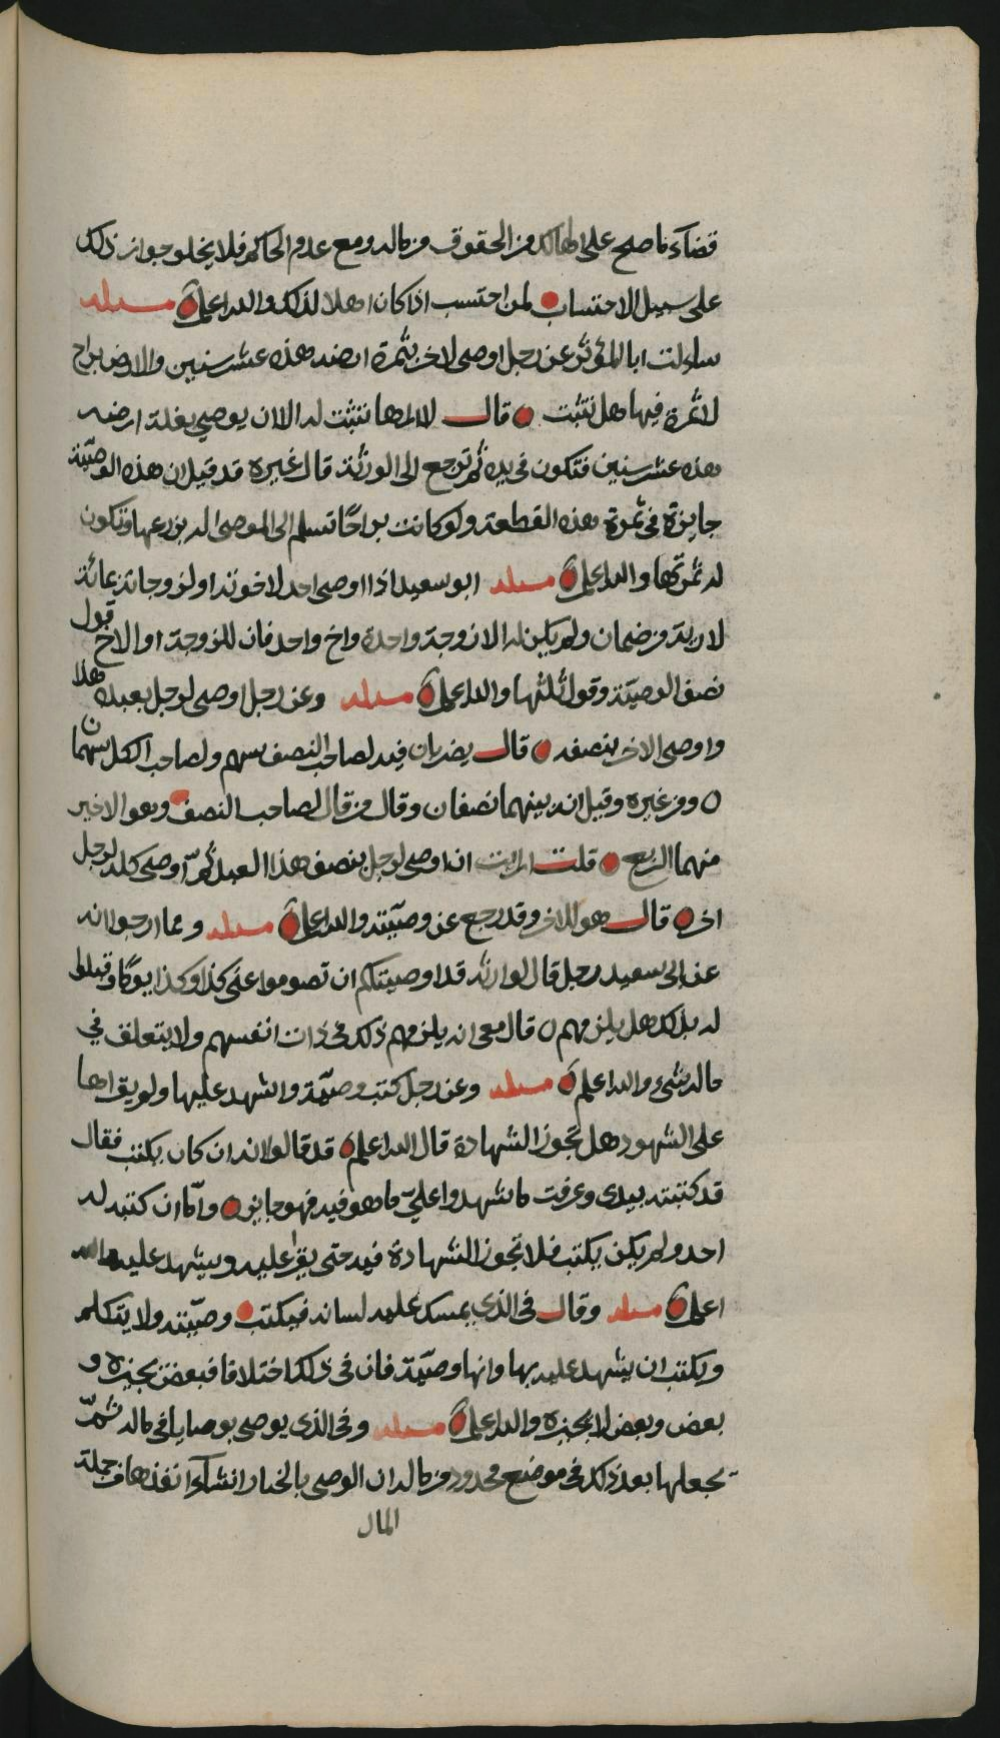 قضاء ما صح على الهالك من الحقوق من ماله ومع عدم الحاكم فلا يخلو جواز ذلك
على سبيل الاحتساب لمن احتسب اذا كان اهلا لذلك والله اعلم مسئلة
سالت ابا المؤثر عن رجل اوصى لاخر بثمرة ارضه هذه عشر سنين والارض براح
لا ثمرة فيها هل تثبت قال لا اراها تثبت له الا ان يوصي بغلة ارضه
هذه عشر سنين فتكون في يده ثم ترجع الى الورثة قال غيره قد قيل ان هذه الوصية
جايزة في ثمرة هذه القطعة ولو كانت براحا تسلم الى الموصى له يزرعها وتكون
له ثمرتها والله اعلم مسئلة ابو سعيد اذا اوصى احد لاخوته او لزوجاته بمائة
لارية من ضمان ولم يكن له الا زوجة واحدة واخ واحد فان للزوجة او الاخ قول
نصف الوصية وقول ثلثها والله اعلم مسئلة وعن رجل اوصى لرجل بعبده هذا
واوصى لاخر بنصفه قال يضربان فيه لصاحب النصف سهم ولصاحب الكل سهمان
ومن غيره وقيل انه بينهما نصفان وقال من قال لصاحب النصف وهو الاخير
منهما الربع قلت ارايت ان اوصى لرجل بنصف هذا العبد ثم اوصى كله لرجل
اخر قال هو للاخر وقد رجع عن وصيته والله اعلم مسئلة ومما ارجوا انه
عن ابي سعيد رجل قال لوارثه قد اوصيتكم ان تصوموا عني كذا وكذا يوما وقبلوا
له بذلك هل يلزمهم قال معي انه يلزمهم ذلك في ذات انفسهم ولا يتعلق في
ماله شيء والله اعلم مسئلة وعن رجل كتب وصية واشهد عليها ولم يقراها
على الشهود هل تجوز الشهادة قال الله اعلم قد قالوا انه ان كان يكتب فقال
قد كتبته بيدي وعرفت ما شهدوا علي ما هو فيه فهو جايز واما ان كتبه له
احد ولم يكن يكتب فلا تجوز الشهادة فيه حتى يقرا عليه ويشهد عليه والله
اعلم مسئلة وقال في الذي يمسك عليه لسانه فيكتب وصيته ولا يتكلم
ويكتب ان يشهد عليه بها وانها وصية فان في ذلك اختلافا فبعض يجيزه و
بعض وبعض لا يجيزه والله اعلم مسئلة وفي الذي يوصي بوصايا في ماله ثم
يجعلها بعد ذلك في موضع محدود من ماله ان الوصي بالخيار ان شاء انفذها من جملة
المال